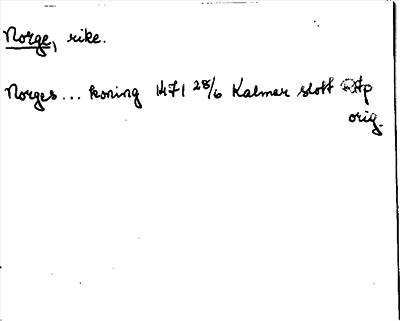 Norge, rike.
Norges... koning 1471 28/6 Kalmar slott Ap
orig.